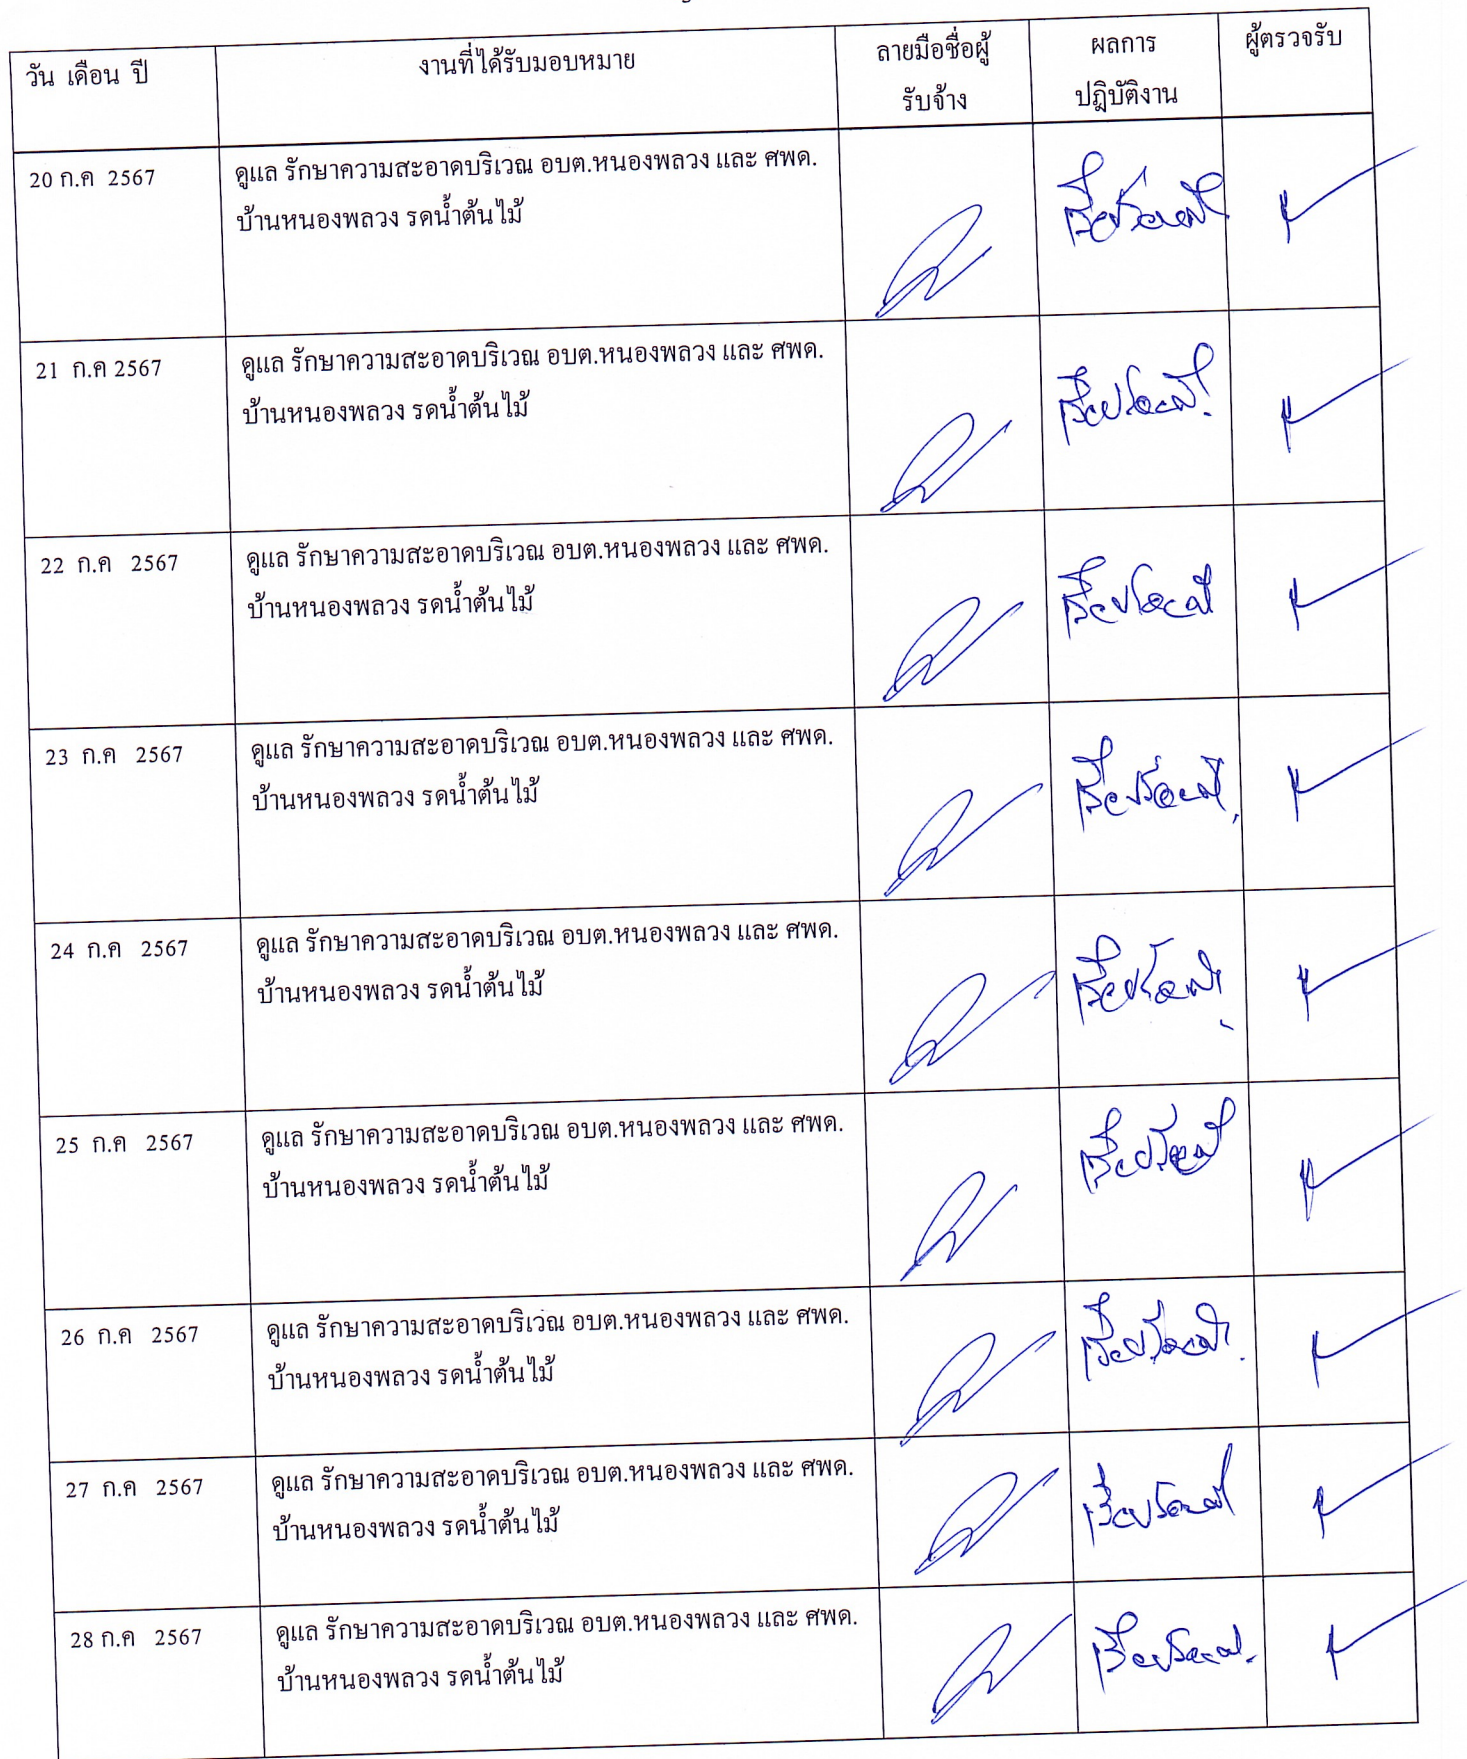 วัน เดือน ปี
งานที่ได้รับมอบหมาย
ลายมือชื่อผู้
รับจ้าง
ผลการ
ปฎิบัติงาน
ผู้ตรวจรับ
20 ก.ค 2567
ดูแล รักษาความสะอาดบริเวณ อบต.หนองพลวง และ ศพด.
บ้านหนองพลวง รดน้ำต้นไม้
เรียบร้อยดี
21 ก.ค 2567
ดูแล รักษาความสะอาดบริเวณ อบต.หนองพลวง และ ศพด.
บ้านหนองพลวง รดน้ำต้นไม้
เรียบร้อยดี
22 ก.ค 2567
ดูแล รักษาความสะอาดบริเวณ อบต.หนองพลวง และ ศพด.
บ้านหนองพลวง รดน้ำต้นไม้
เรียบร้อยดี
23 ก.ค 2567
ดูแล รักษาความสะอาดบริเวณ อบต.หนองพลวง และ ศพด.
บ้านหนองพลวง รดน้ำต้นไม้
เรียบร้อยดี
24 ก.ค 2567
ดูแล รักษาความสะอาดบริเวณ อบต.หนองพลวง และ ศพด.
บ้านหนองพลวง รดน้ำต้นไม้
เรียบร้อยดี
25 ก.ค 2567
ดูแล รักษาความสะอาดบริเวณ อบต.หนองพลวง และ ศพด.
บ้านหนองพลวง รดน้ำต้นไม้
เรียบร้อยดี
26 ก.ค 2567
ดูแล รักษาความสะอาดบริเวณ อบต.หนองพลวง และ ศพด.
บ้านหนองพลวง รดน้ำต้นไม้
เรียบร้อยดี
27 ก.ค 2567
ดูแล รักษาความสะอาดบริเวณ อบต.หนองพลวง และ ศพด.
บ้านหนองพลวง รดน้ำต้นไม้
เรียบร้อยดี
28 ก.ค 2567
ดูแล รักษาความสะอาดบริเวณ อบต.หนองพลวง และ ศพด.
บ้านหนองพลวง รดน้ำต้นไม้
เรียบร้อยดี